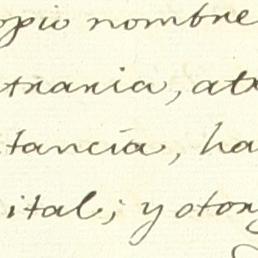 opio nombre
trania, atr
tancia, ha
ital; y otorg